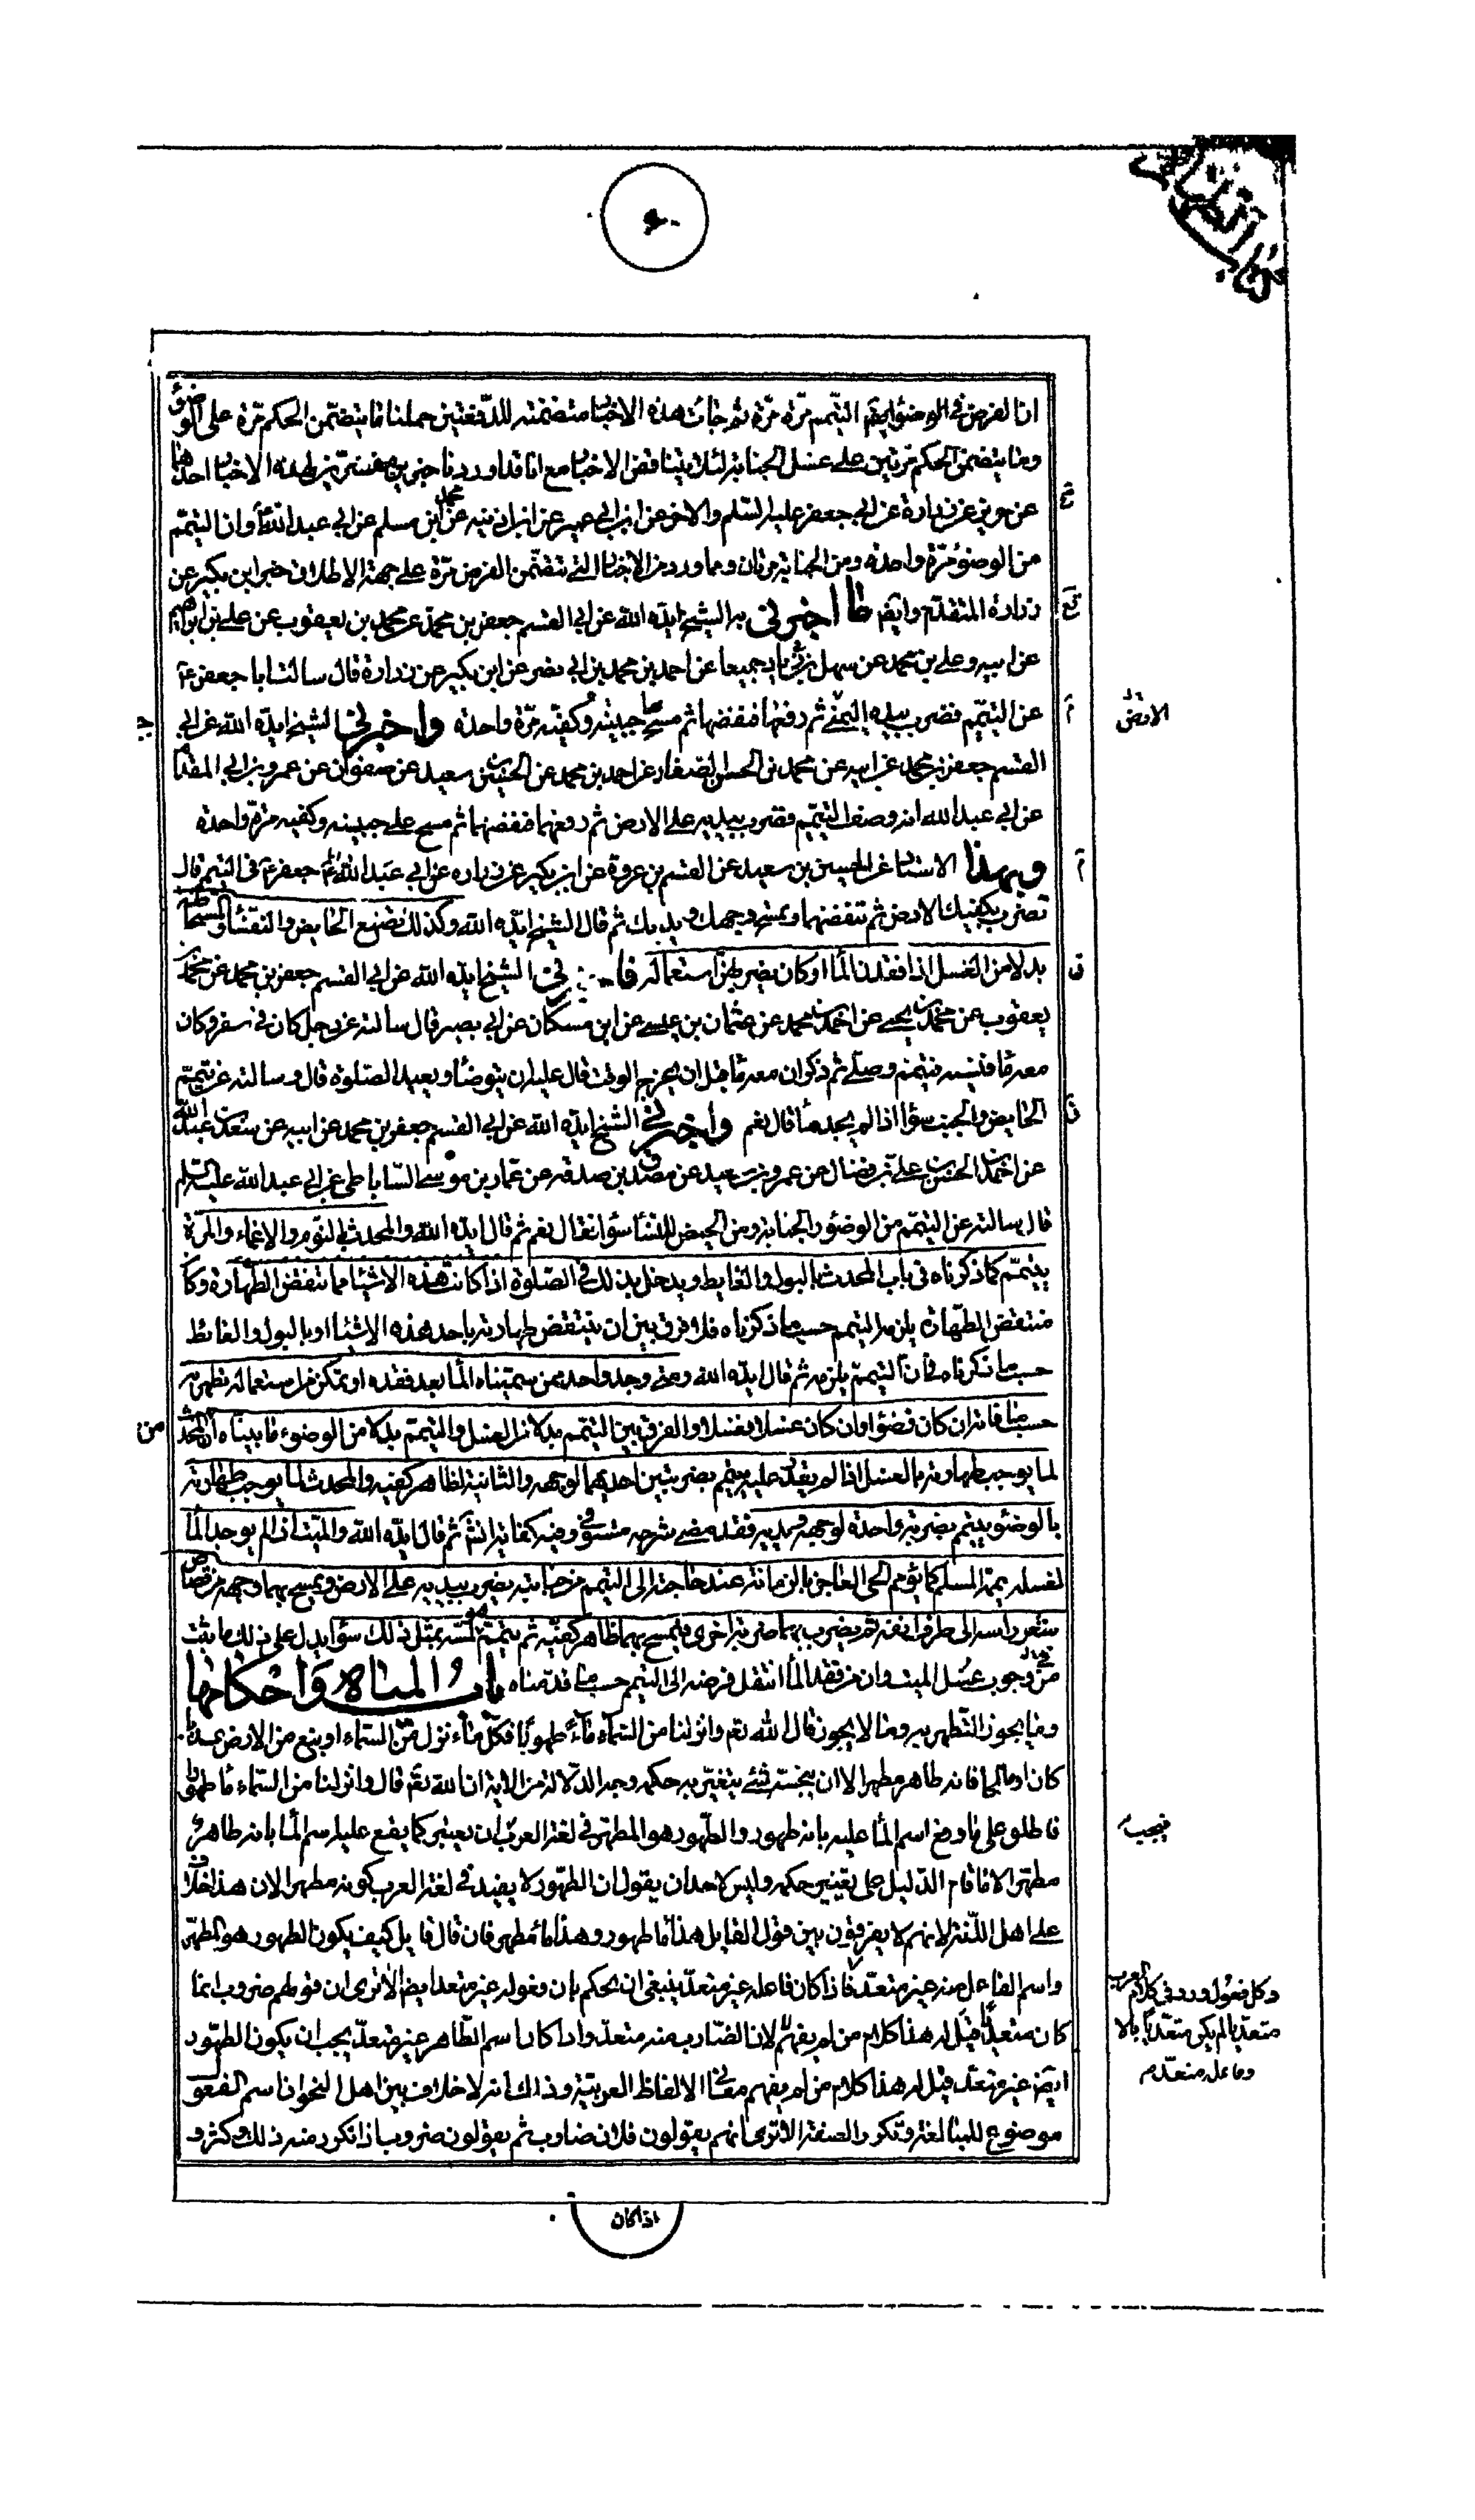 كتاب الطهارة
٦٠
ان الفرض في الوضوء التيمم مرّة مرّة ثم جائت هذه الاخبار متضمنة للدفعتين حملنا ما يتضمن الحكم مرّة على الوضوء
وما يتضمن الحكم مرتين على غسل الجنابة لئلا يتناقض الاخبار مع انا قد اوردنا خبرين مفسرين لهذه الاخبار احدهما
عن حريز عن زرارة عن ابي جعفر عليه السلم والاخر عن ابن ابي عمير عن ابن اذينه عن محمد ابن مسلم عن ابي عبد الله ع وان التيمم
من الوضوء مرّة واحدة ومن الجنابة مرتان ومما ورد من الاخبار التي تتضمن الفرض مرّة على جهة الاطلاق خبر ابن بكير عن
زرارة المتقدم وايضم ما اخبرني به الشيخ ايّده الله عن ابي القسم جعفر بن محمد عن محمد بن يعقوب عن علي بن ابراهيم
عن ابيه وعلي بن محمد عن سهل بن زياد جميعا عن احمد بن محمد بن ابي نصر عن ابن بكير عن زرارة قال سالت ابا جعفر ع
عن التيمم فضرب بيده اليمنى ثم رفعها فنفضها ثم مسح بها جبينه وكفيه مرّة واحدة واخبرني الشيخ ايّده الله عن ابي
الارض
القسم جعفر بن محمد عن ابيه عن محمد بن الحسن الصفار عن احمد بن محمد عن الحسين بن سعيد عن صفوان عن عمرو بن ابي المقدام
عن ابي عبد الله انه وصف التيمم فضرب بيديه على الارض ثم رفعهما فنفضهما ثم مسح على جبينه وكفيه مرّة واحدة
وبهذا الاسناد عن الحسين بن سعيد عن القسم بن عروة عن ابن بكير عن زراره عن ابي جعفر ع في التيمم قال
تضرب بكفيك الارض ثم تنفضهما وتمسح وجهك ويديك ثم قال الشيخ ايّده الله وكذلك تصنع الحايض والنفساء والمستحاضة
بدلا من الغسل اذا فقدن الماء او كان يضر بهن استعماله فاخبرني الشيخ ايّده الله عن ابي القسم جعفر بن محمد عن محمد بن
يعقوب عن محمد بن يحيى عن احمد بن محمد عن عثمان بن عيسى عن ابن مسكان عن ابي بصير قال سالته عن رجل كان في سفر وكان
معه ماء فنسيه فتيمم وصلى ثم ذكر ان معه ماء قبل ان يخرج الوقت قال عليه ان يتوضأ ويعيد الصلوة قال وسالته عن تيمم
الحايض والجنب سواء اذا لم يجد ماء قال نعم واخبرني الشيخ ايّده الله عن ابي القسم جعفر بن محمد عن ابيه عن سعد بن عبد الله
عن احمد بن الحسن بن علي بن فضال عن عمرو بن سعيد عن مصدق بن صدقه عن عمار بن موسى الساباطي عن ابي عبد الله عليه السلم
قال سالته عن التيمم من الوضوء والجنابة ومن الحيض للنساء سواء فقال نعم ثم قال ايّده الله والمحدث بالنوم والاغماء والمرّة
يتيمم كما ذكرناه في باب المحدث بالبول والغايط ويدخل بذلك في الصلوة اذا كانت هذه الاشياء مما تنقض الطهارة وكان
منتقض الطهارة يلزمه التيمم حسب ما ذكرناه فلا فرق بين ان ينتقض طهارته باحد هذه الاشياء او بالبول والغائط
حسب ما ذكرناه في ان التيمم يلزمه ثم قال ايّده الله ومتى وجد واحد ممن سميناه الماء بعد فقده او تمكن من استعماله تطهر به
حسب ما فاته ان كان وضوءا وان كان غسلا فغسلا والفرق بين التيمم بدلا من الغسل والتيمم بدلا من الوضوء ما بيناه ان المحدث
لما يوجب طهارته بالغسل اذا لم يقدر عليه يتيمم بضربتين احديهما لوجهه والثانية لظاهر كفيه والمحدث لما يوجب طهارته
بالوضوء يتيمم بضربة واحدة لوجهه ويديه فقد مضى شرحه مستوفى وفيه كفاية انش ثم قال ايّده الله والميت اذا لم يوجد الماء
لغسله يممه المسلم كما يؤمم الحي العاجز بالزمانة عند حاجته الى التيمم من جنابته يضرب بيديه على الارض ويمسح بهما وجهه من قصاص
شعر راسه الى طرف انفه ثم يضرب بهما ضربة اخرى فيمسح بهما ظاهر كفيه ثم يتيمم هو لمسه بمثل ذلك سواء يدل على ذلك ما ثبت
من وجوب غسل الميت وان من فقد الماء انتقل فرضه الى التيمم حسب ما قدمناه باب المياه واحكامها
وما يجوز التطهر به وما لا يجوز قال الله تعم وانزلنا من السماء ماء طهورا فكل ماء نزل من السماء او نبع من الارض عذبا
كان او مالحا فانه طاهر مطهر الا ان ينجسه شئ يتغير به حكمه وجه الدلالة من الاية ان الله تعم قال وانزلنا من السماء ماء طهورا
فاطلق على ما وقع اسم الماء عليه بانه طهور والطهور هو المطهر في لغة العرب ان يعتبر كما يقع عليه اسم الماء بانه طاهر و
فيجب
مطهر الا ما قام الدليل على تغيير حكمه وليس لاحد ان يقول ان الطهور لا يفيد في لغة العرب كونه مطهرا لان هذا خلاف
على اهل اللغة لانهم لا يفرقون بين قول القايل هذا ماء طهور وهذا ماء مطهر فان قال قايل كيف يكون الطهور هو المطهر
واسم الفاعل منه غير متعد فاذا كان فاعله غير متعد ينبغي ان يحكم بان فعوله غير متعد ايضا الا ترى ان قولهم ضروب انما
وكل فعول ورد في كلام العرب
متعديا لم يكن متعديا الا
وفاعله متعد م
كان متعديا قيل له هذا كلام من لم يفهم لان الضارب منه متعد واذا كان اسم الطاهر غير متعد يجب ان يكون الطهور
ايضم غير متعد قيل له هذا كلام من لم يفهم معاني الالفاظ العربية وذلك انه لا خلاف بين اهل النحو ان اسم الفعول
موضوع للمبالغة وتكرر الصفة الا ترى انهم يقولون فلان ضارب ثم يقولون ضروب اذا تكرر منه ذلك وكثر و
اذا كان